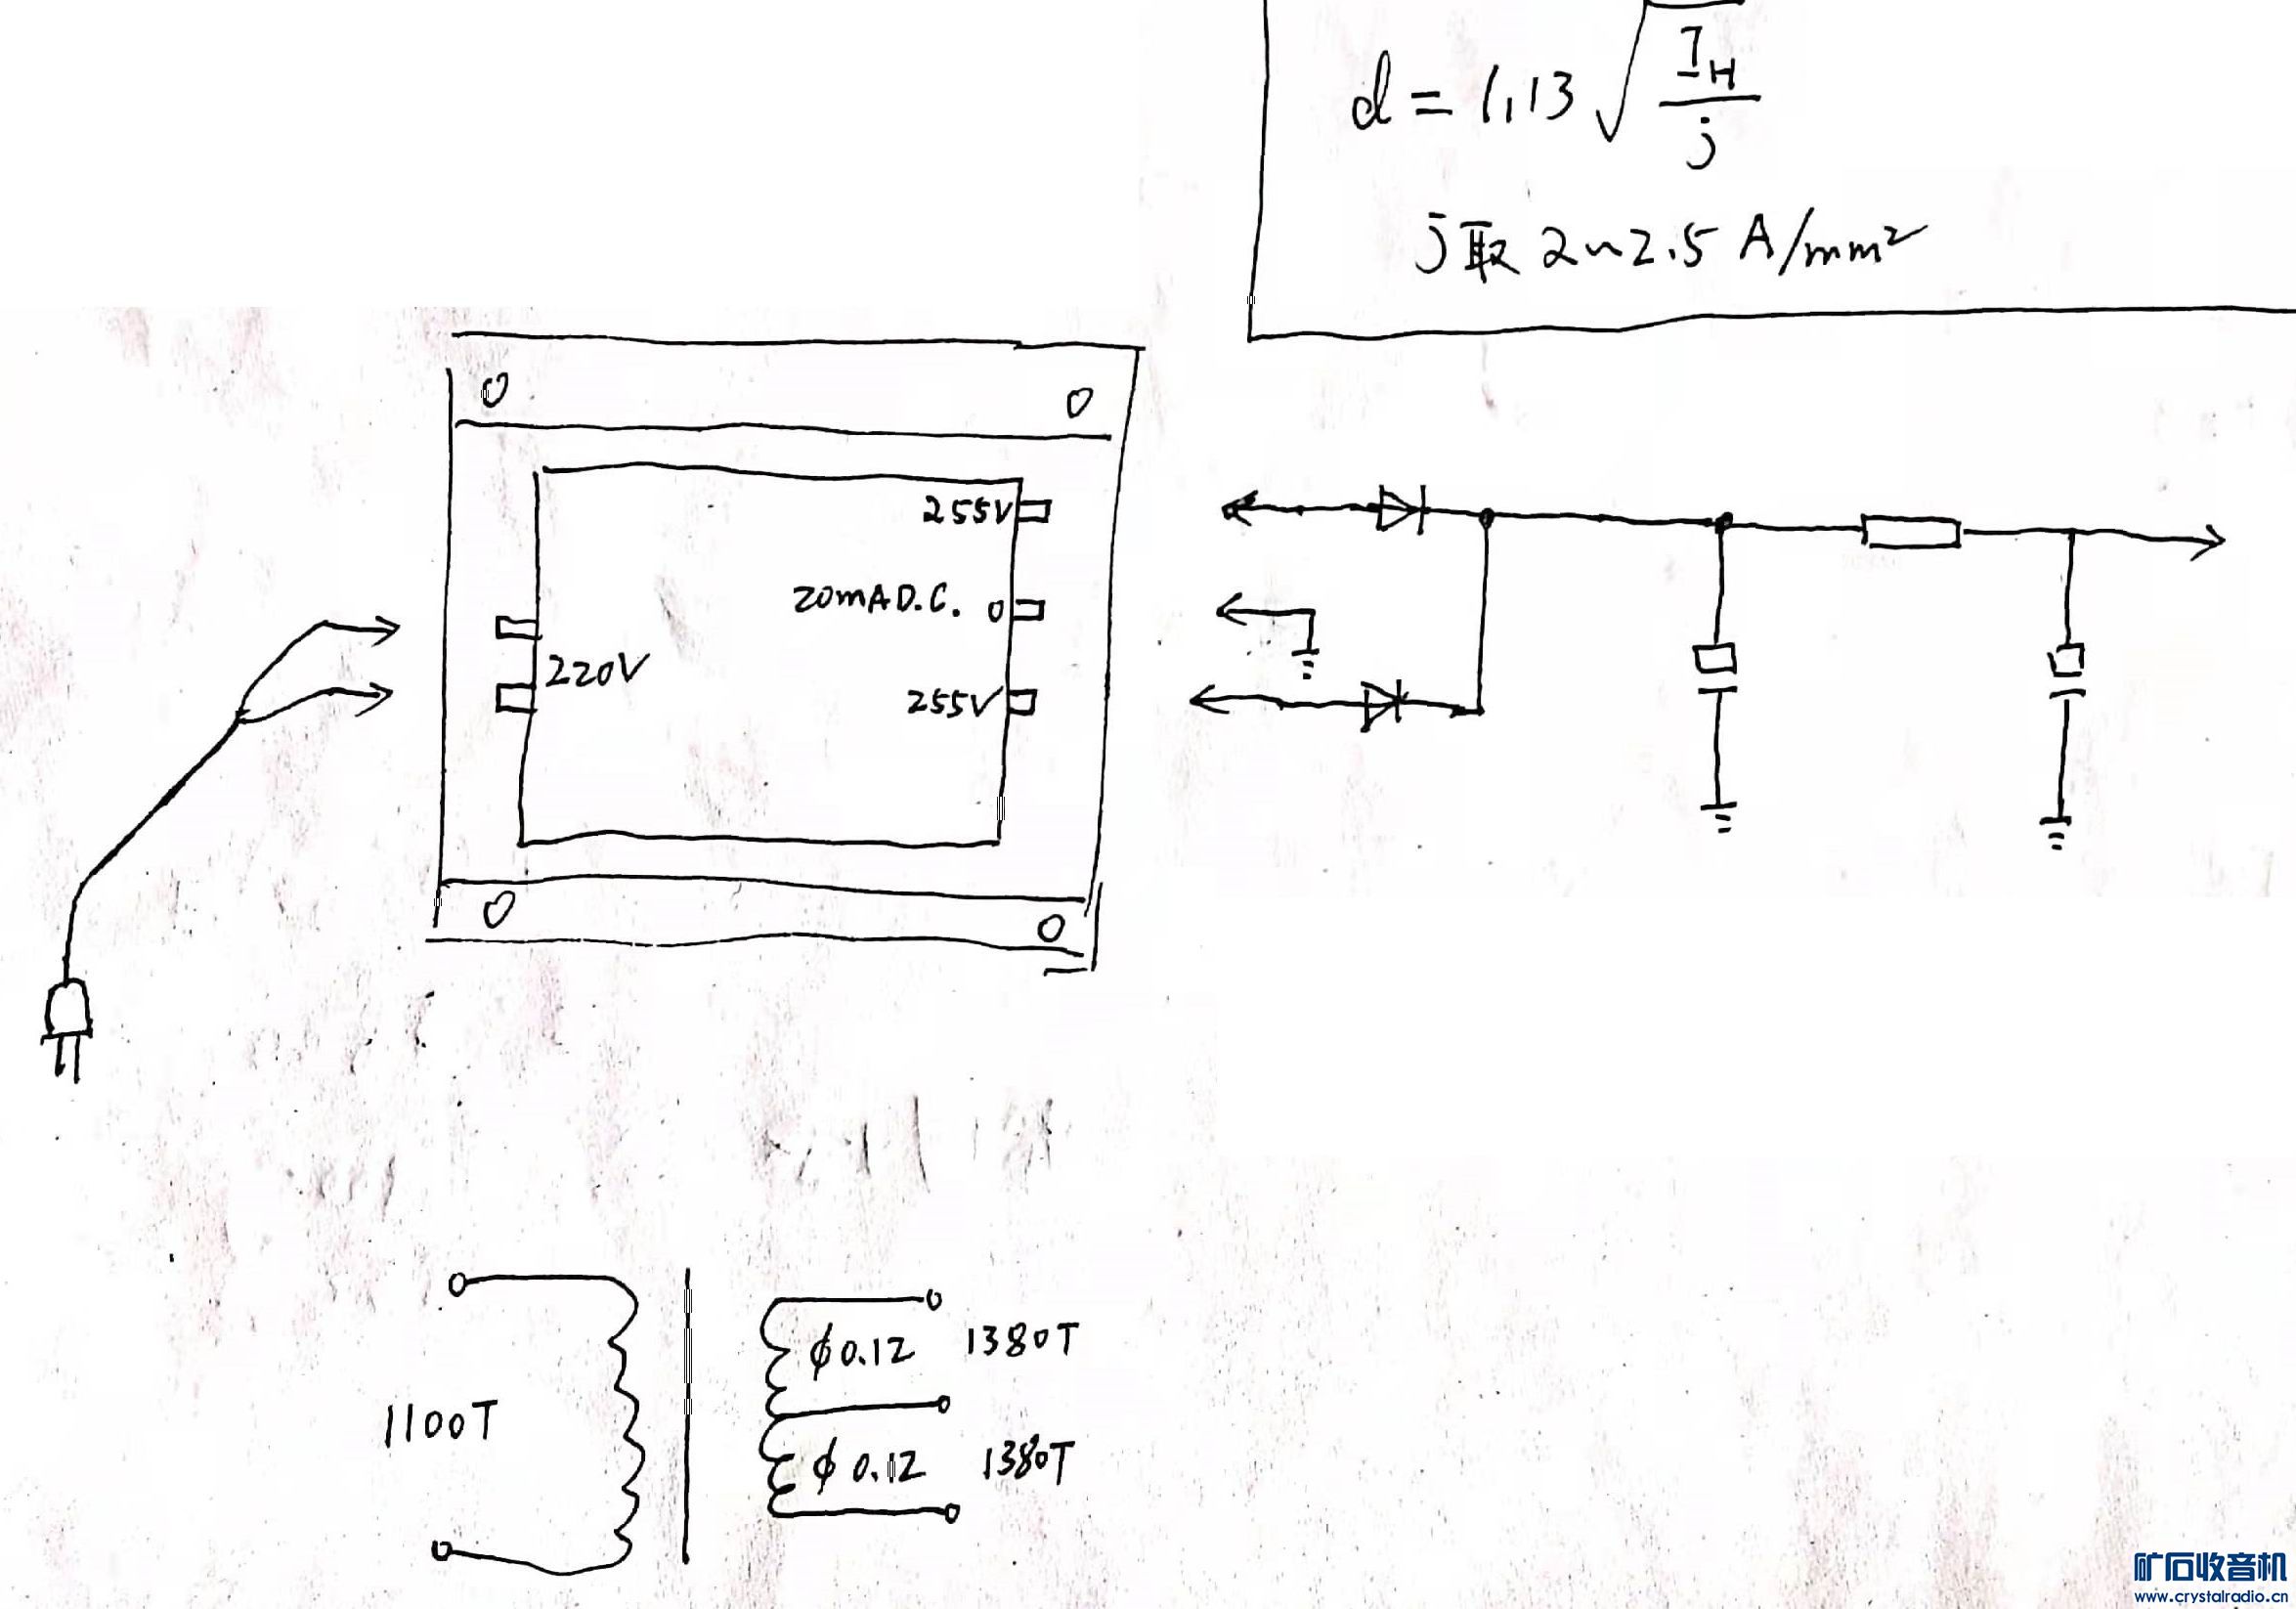 d = 1.13 √(I_H / j)
j取 2~2.5 A/mm²
O O
255V
20mA D.C. 0
220V
255V
O O
φ0.12 1380T
1100T
φ0.12 1380T
矿石收音机
www.crystalradio.cn